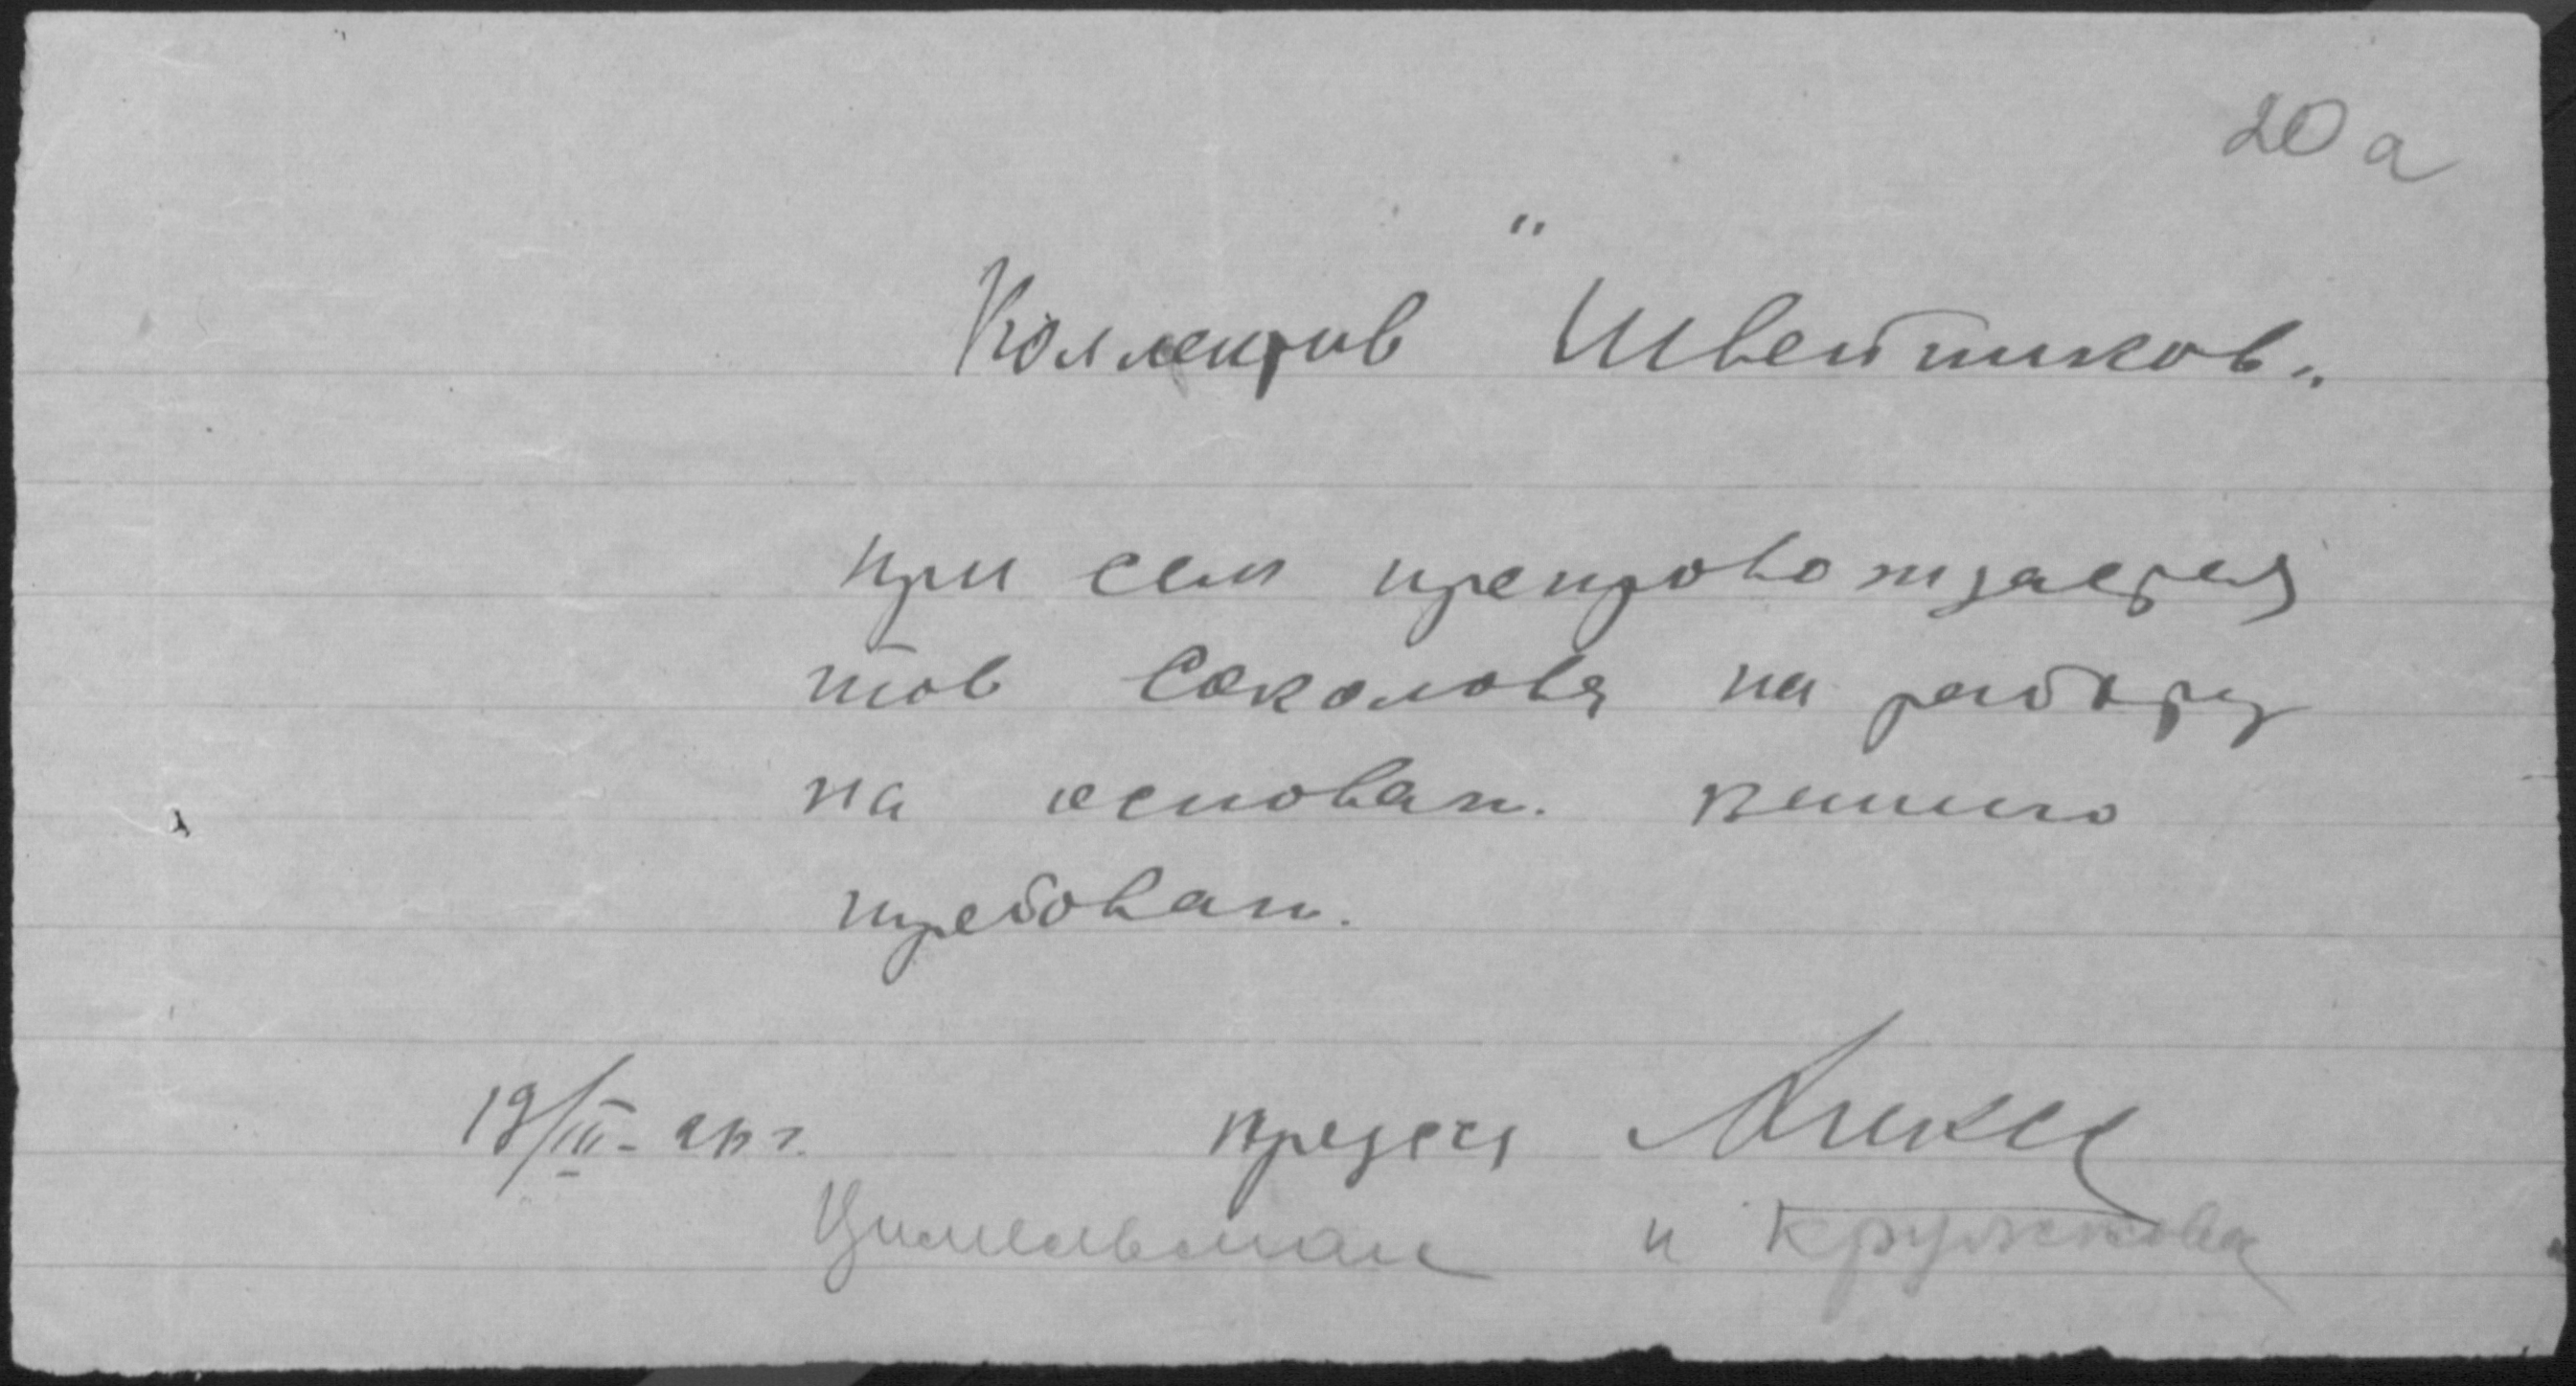 20 а
Коллектив "Швейников„
при сем препровождается
тов Соколова на работу
на основан. вашего
требован.
19/III - 26 г. председ
Цимельман и Кружкова